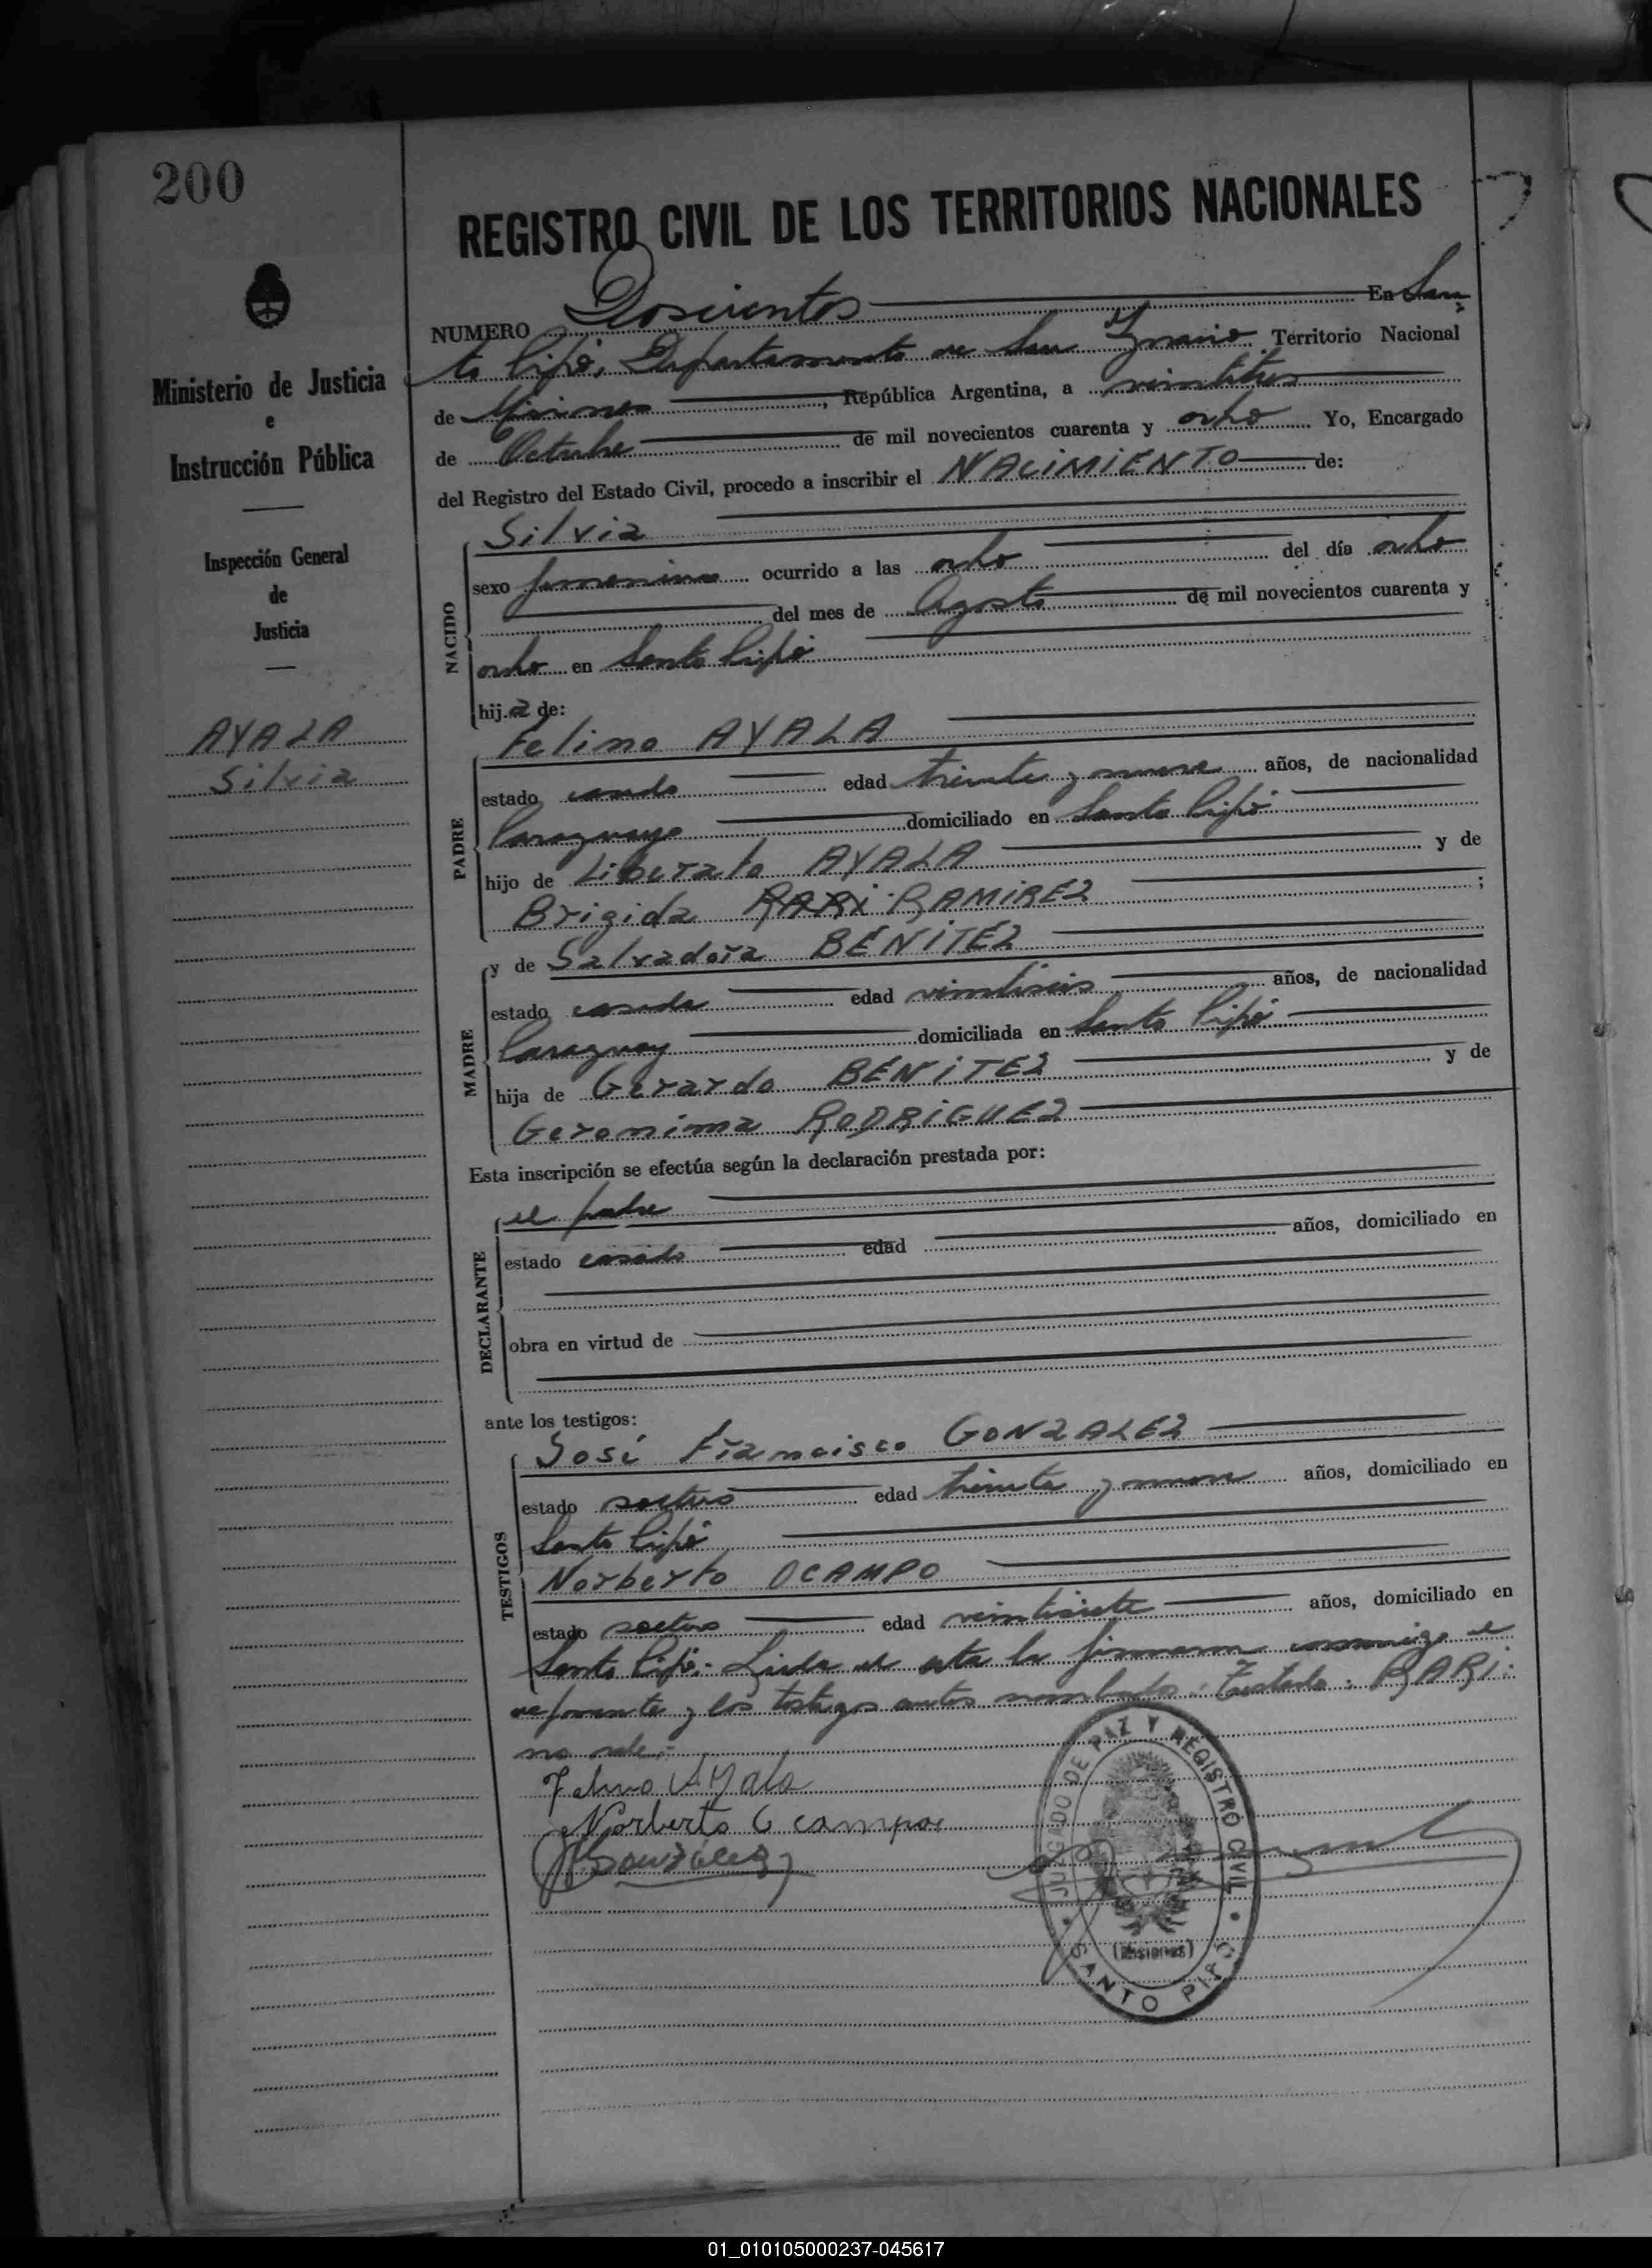 200
REGISTRO CIVIL DE LOS TERRITORIOS NACIONALES
Ministerio de Justicia
e
Instrucción Pública
Inspección General
de
Justicia
AYALA
Silvia
NUMERO Doscientos En San
to Pipó, Departamento de San Ignacio Territorio Nacional
de Misiones, República Argentina, a veintitres
de Octubre de mil novecientos cuarenta y ocho Yo, Encargado
del Registro del Estado Civil, procedo a inscribir el NACIMIENTO de:
NACIDO
Silvia
sexo femenino ocurrido a las ocho del día ocho
del mes de Agosto de mil novecientos cuarenta y
ocho en Santo Pipó
hija de:
PADRE
Felino AYALA
estado casado edad treinta y nueve años, de nacionalidad
Paraguayo domiciliado en Santo Pipó
hijo de Liberato AYALA y de
Brigida RARI RAMIREZ ;
MADRE
y de Salvadora BENITEZ
estado casada edad veintiseis años, de nacionalidad
Paraguay domiciliada en Santo Pipó
hija de Gerardo BENITEZ y de
Geronima RODRIGUEZ
Esta inscripción se efectúa según la declaración prestada por:
DECLARANTE
el padre
estado casado edad años, domiciliado en
obra en virtud de
ante los testigos:
TESTIGOS
José Francisco GONZALEZ
estado soltero edad treinta y nueve años, domiciliado en
Santo Pipó
Norberto OCAMPO
estado soltero edad veintisiete años, domiciliado en
Santo Pipó. Leida el acta la firmaron conmigo el
deponente y los testigos antes nombrados. Testado: RARI:
no vale.-
Felino Ayala
Norberto Ocampo
JF Gonzalez
JUZGADO DE PAZ Y REGISTRO CIVIL
(Misiones)
SANTO PIPO
01_010105000237-045617